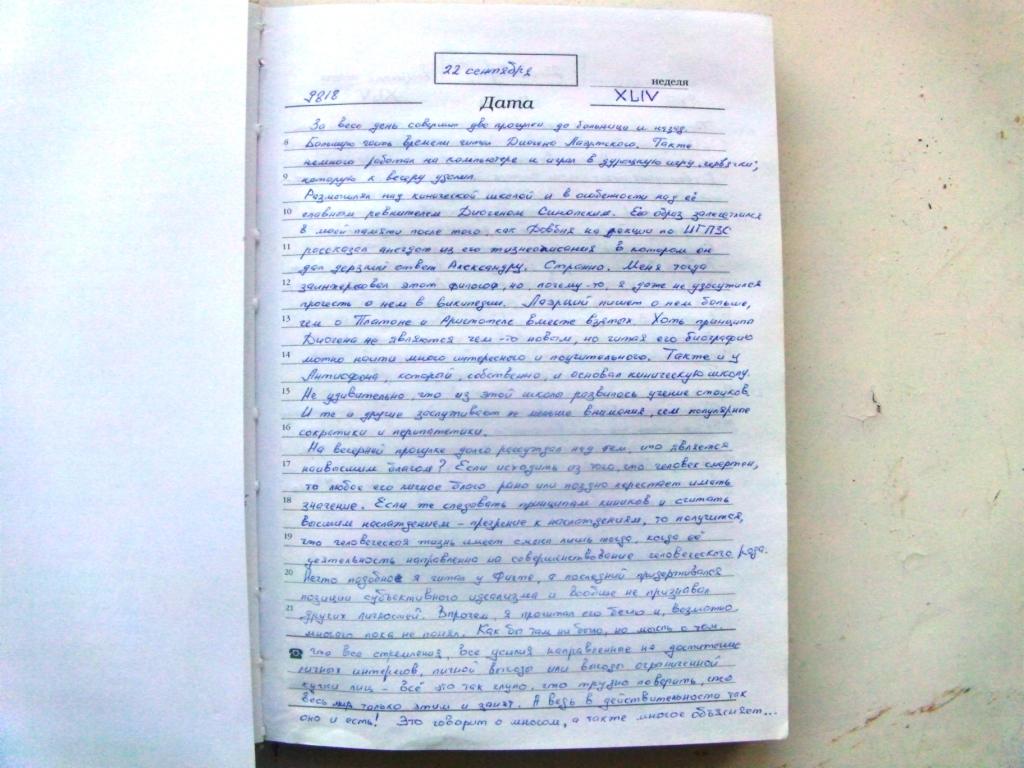 22 сентября
неделя
9818
Дата
XLIV
За весь день совершил две прогулки до больницы и назад.
8 Большую часть времени читал Диогена Лаэртского. Также
немного работал на компьютере и играл в дурацкую игру "червячки",
9 которую к вечеру удалил.
Размышлял над кинической школой и в особености над её
10 главным ревнителем Диогеном Синопским. Его образ запечатлился
в моей памяти после того, как на лекции по ИГПЗС
11 рассказал анегдот из его жизнеописания в котором он
дал дерзкий ответ Александру. Странно. Меня тогда
12 заинтересовал этот философ, но, почему-то, я даже не удосужился
прочесть о нем в википедии. Лаэрций пишет о нем больше,
13 чем о Платоне и Аристотеле вместе взятых. Хоть принципы
Диогена не являются чем-то новым, но читая его биографию
14 можно найти много интересного и поучительного. Также и у
Антисфона, который, собственно, и основал киническую школу.
15 Не удивительно, что из этой школы развилось учение стоиков.
И те и другие заслуживают не меньше внимания, чем популярные
16 сократики и перипатетики.
На вечерней прогулке долго рассуждал над тем, что является
17 наивысшим благом? Если исходить из того, что человек смертен,
то любое его личное благо рано или поздно перестает иметь
18 значение. Если же следовать принципам киников и считать
высшим наслаждением - презрение к наслаждениям, то получится,
19 что человеческая жизнь имеет смысл лишь тогда, когда её
деятельность направленна на совершинствование человеческого рода.
20 Нечто подобное я читал у Фихте, а последний придерживался
позиции субъективного идеализма и вообще не признавал
21 других личностей. Впрочем, я прочитал его бегло и, возможно
многого пока не понял. Как бы там ни было, но мысль о том,
☎ что все стремления, все усилия направленные на достижение
личных интересов, личной выгоды или выгоды ограниченной
кучки лиц - всё это так глупо, что трудно поверить, что
весь мир только этим и занят. А ведь в действительности так
оно и есть! Это говорит о многом, а также многое объясняет...